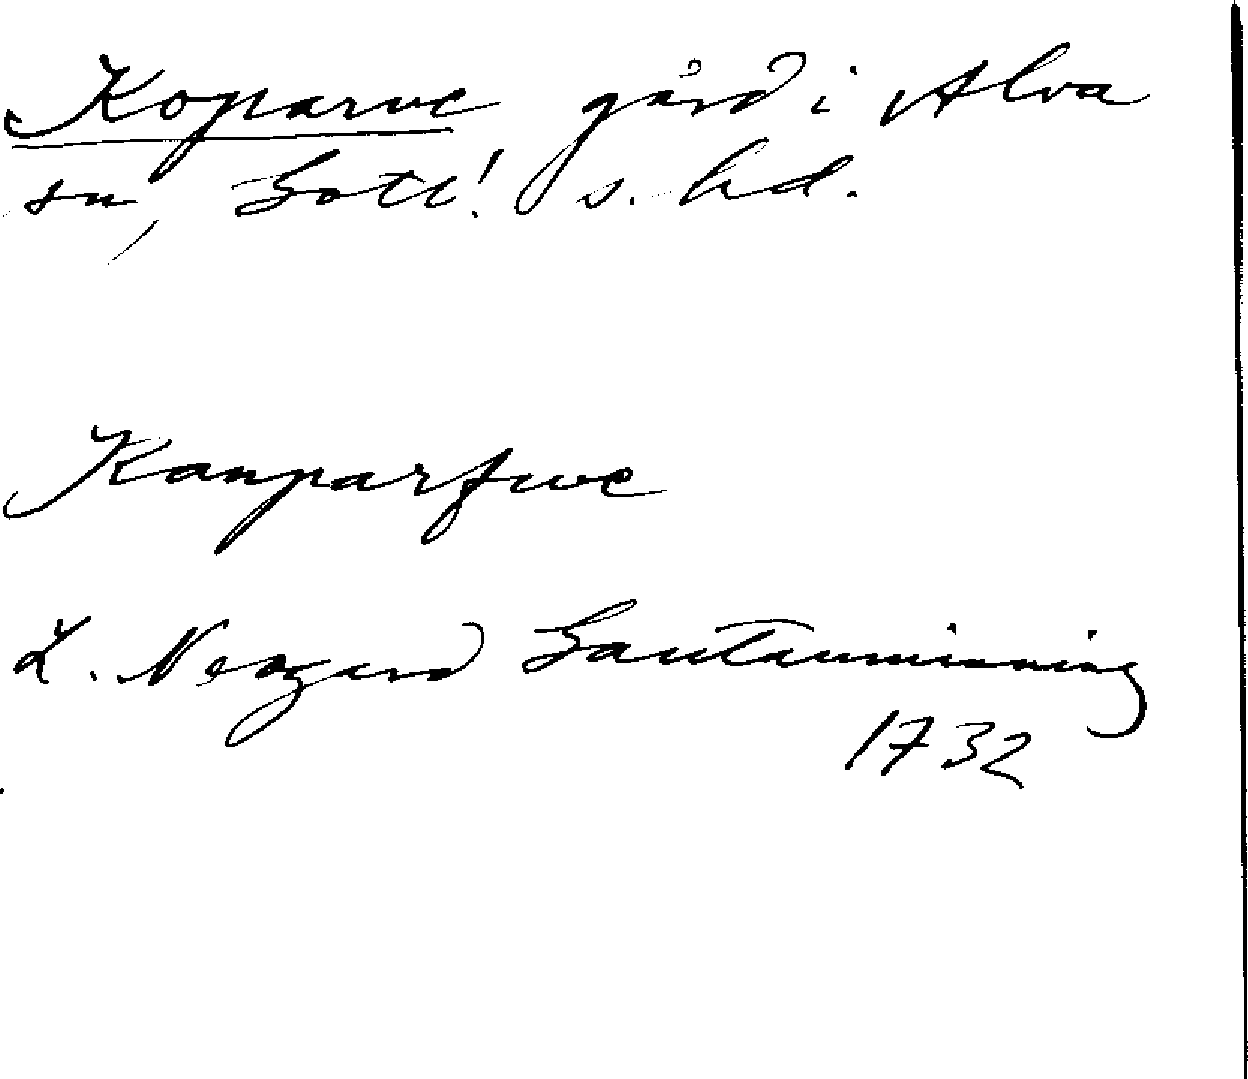 Koparve gård i Alva
sn, Gotl! s. hd.
Kauparfwe
L. Neogard Gautauminning
1732